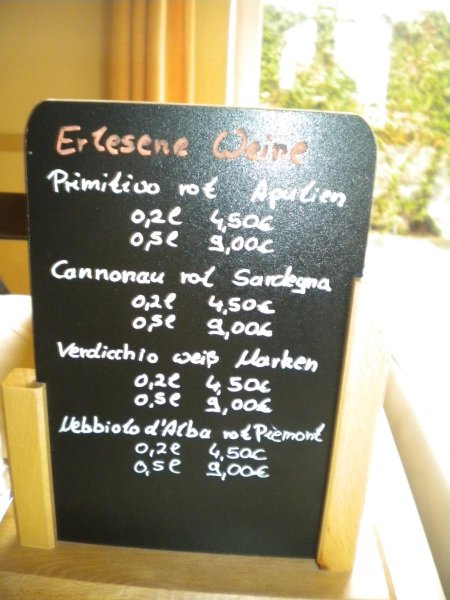 Erlesene Weine
Primitivo rot Apulien
0,2l 4,50€
0,5l 9,00€
Cannonau rot Sardegna
0,2l 4,50€
0,5l 9,00€
Verdicchio weiß Marken
0,2l 4,50€
0,5l 9,00€
Nebbiolo d'Alba rot Piemont
0,2l 4,50€
0,5l 9,00€